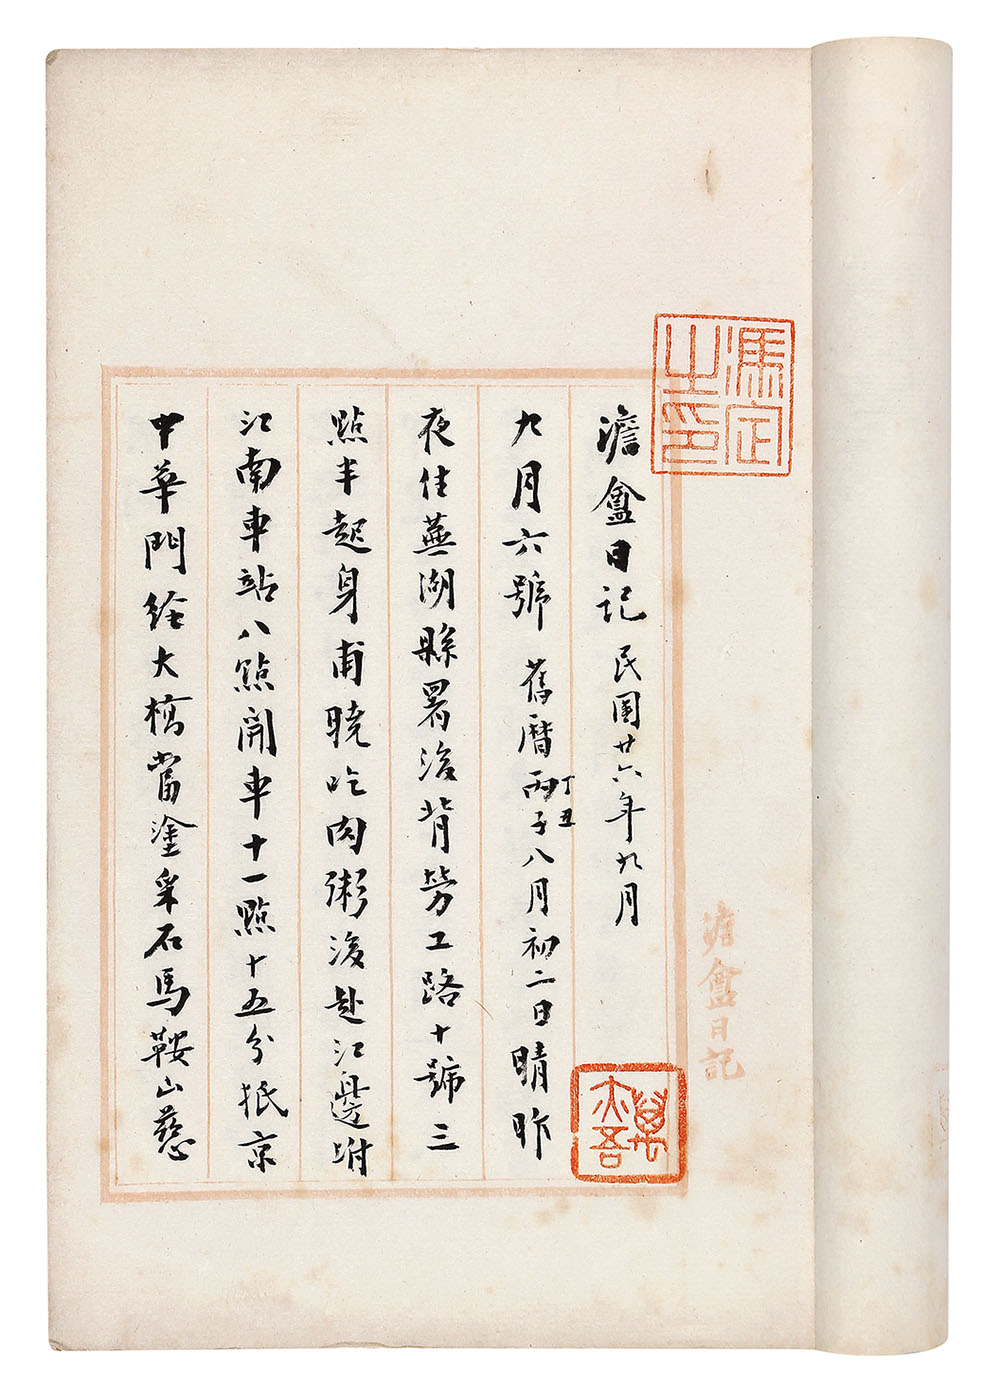 澹盦日記 民國廿六年九月
九月六號 舊曆丙子八月初二日晴昨
丁丑
夜住蕪湖縣署後背勞工路十號三
點半起身甫曉吃肉粥後赴江邊坿
江南車站八點開車十一點十五分抵京
中華門經大橋當塗采石馬鞍山慈
馮定之印
澹盦日記